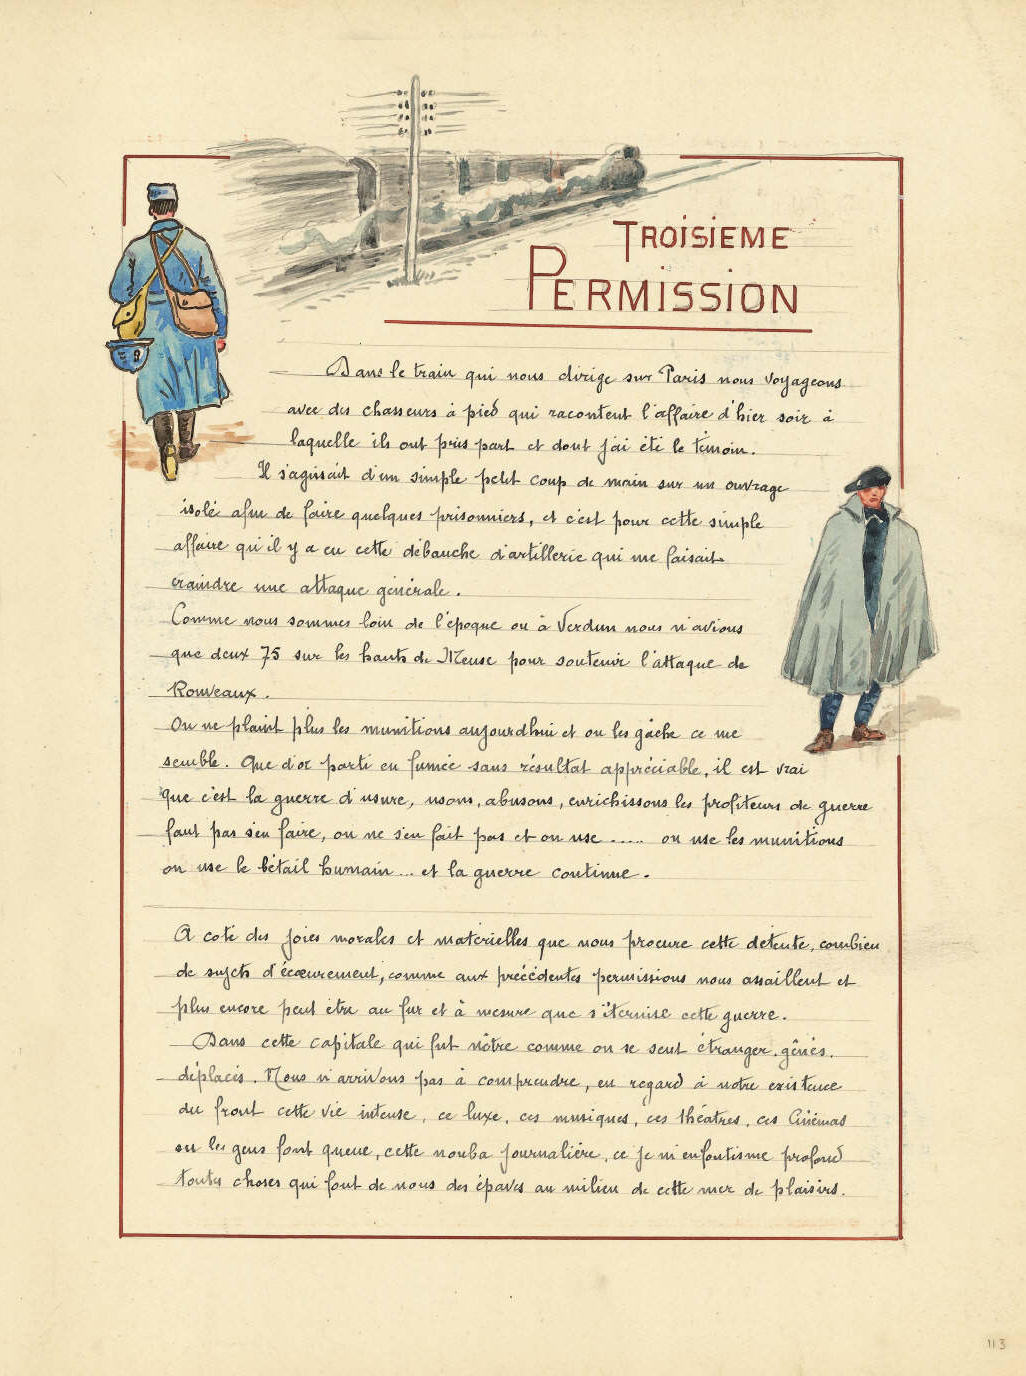 TROISIEME
PERMISSION
Dans le train qui nous dirige sur Paris nous voyageons
avec des chasseurs à pied qui racontent l'affaire d'hier soir à
laquelle ils ont pris part et dont j'ai été le témoin.
Il s'agissait d'un simple petit coup de main sur un ouvrage
isolé afin de faire quelques prisonniers, et c'est pour cette simple
affaire qu'il y a eu cette débauche d'artillerie qui me faisait
craindre une attaque générale.
Comme nous sommes loin de l'époque ou à Verdun nous n'avions
que deux 75 sur les hauts de Meuse pour soutenir l'attaque de
Ronveaux.
On ne plaint plus les munitions aujourd'hui et on les gâche ce me
semble. Que d'or parti en fumée sans résultat appréciable, il est vrai
que c'est la guerre d'usure, usons, abusons, enrichissons les profiteurs de guerre
faut pas s'en faire, on ne s'en fait pas et on use ..... on use les munitions
on use le bétail humain ... et la guerre continue.
A coté des joies morales et matérielles que nous procure cette détente, combien
de sujets d'écœurement, comme aux précédentes permissions nous assaillent et
plus encore peut être au fur et à mesure que s'éternise cette guerre.
Dans cette capitale qui fut nôtre comme on se sent étranger, gênés,
déplacés. Nous n'arrivons pas à comprendre, en regard à notre existence
du front cette vie intense, ce luxe, ces musiques, ces théatres, ces Cinémas
ou les gens font queue, cette nouba journalière, ce je m'enfoutisme profond
toutes choses qui font de nous des épaves au milieu de cette mer de plaisirs.
113